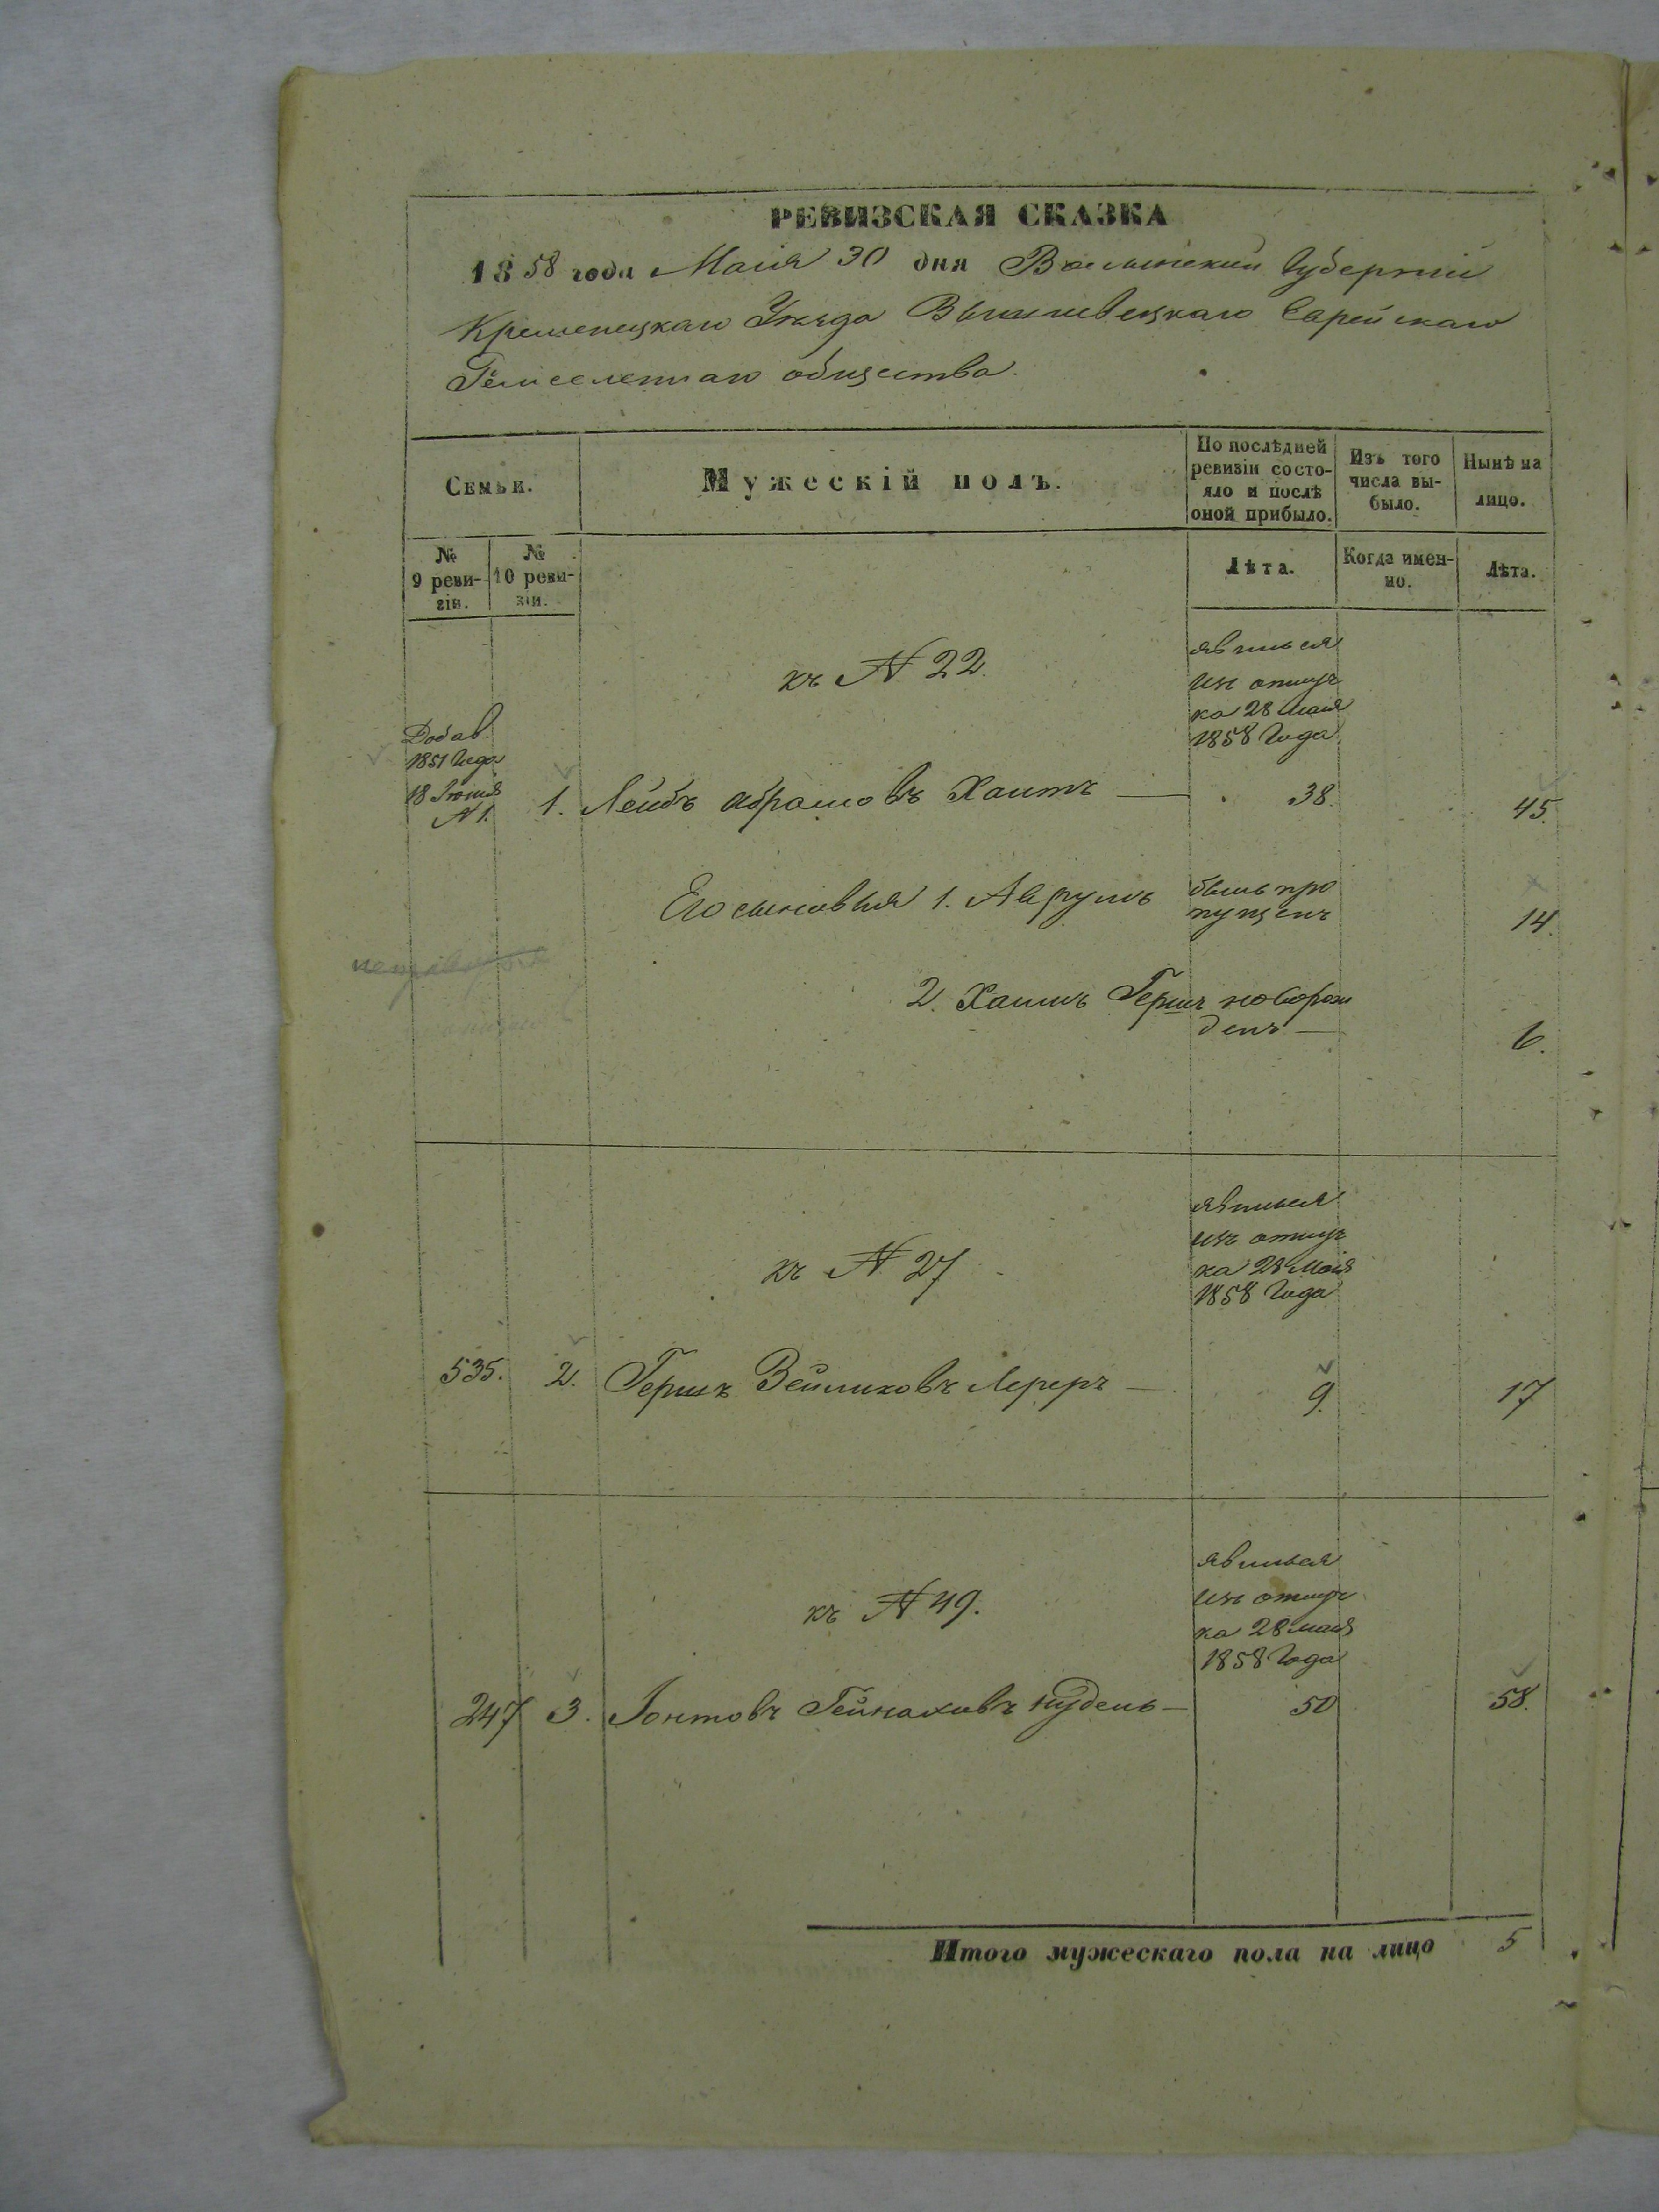 РЕВИЗСКАЯ СКАЗКА
1858 года Маія 30 дня Волынской Губерніи
Кременецкаго Уезда Вышневецкаго Еврейскаго
общества.
Семьи.
Мужескій полъ.
По послѣдней ревизіи состо-яло и послѣ оной прибыло.
Изъ того числа вы-было.
Нынѣ на лицо.
№ 9 реви-зіи.
№ 10 реви-зіи.
Лѣта.
Когда имен-но.
Лѣта.
къ N 22.
явился
изъ отлуч
ка 28 маія
1858 Года
Добав.
1851 Года
18 Іюня
N 1.
1. Лейбъ Абрамовъ Хаитъ — 38. 45.
Его сыновья 1. Аврумъ былъ про
пущенъ 14.
2. Хаимъ Гершъ новорож
денъ — 6.
къ N 27
явился
изъ отлуч
ка 28 Маія
1858 Года
535. 2. Гершъ Зейликовъ Лереръ — 9. 17
къ N 49.
явился
изъ отлуч
ка 28 маія
1858 Года
247 3. Іонтовъ Гейнаховъ Нудель — 50 58.
Итого мужескаго пола на лицо 5